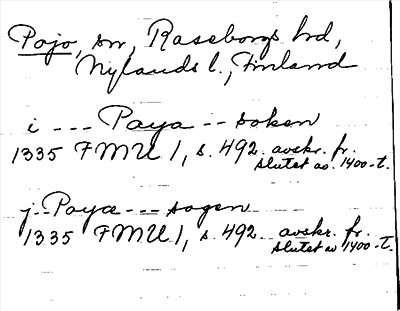 Pojo, sn, Raseborgs hd,
Nylands l., Finland
i --- Paya -- soken
1335 FMU 1, s. 492. avskr. fr.
slutet av 1400-t.
j -- Poyæ --- sogen
1335 FMU 1, s. 492 avskr. fr.
slutet av 1400-t.